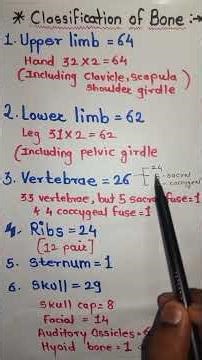 * Classification of Bone :→
1. Upper limb = 64
Hand 32 x 2 = 64
(Including Clavicle, Scapula)
Shoulder girdle
2. Lower limb = 62
Leg 31 x 2 = 62
(Including pelvic girdle
3. Vertebrae = 26
24
sacral
coccygeal
33 vertebrae, but 5 sacral fuse = 1
& 4 coccygeal fuse = 1
4. Ribs = 24
[12 pair]
5. Sternum = 1
6. Skull = 29
Skull cap = 8
Facial = 14
Auditory Ossicles =
Hyoid bone = 1